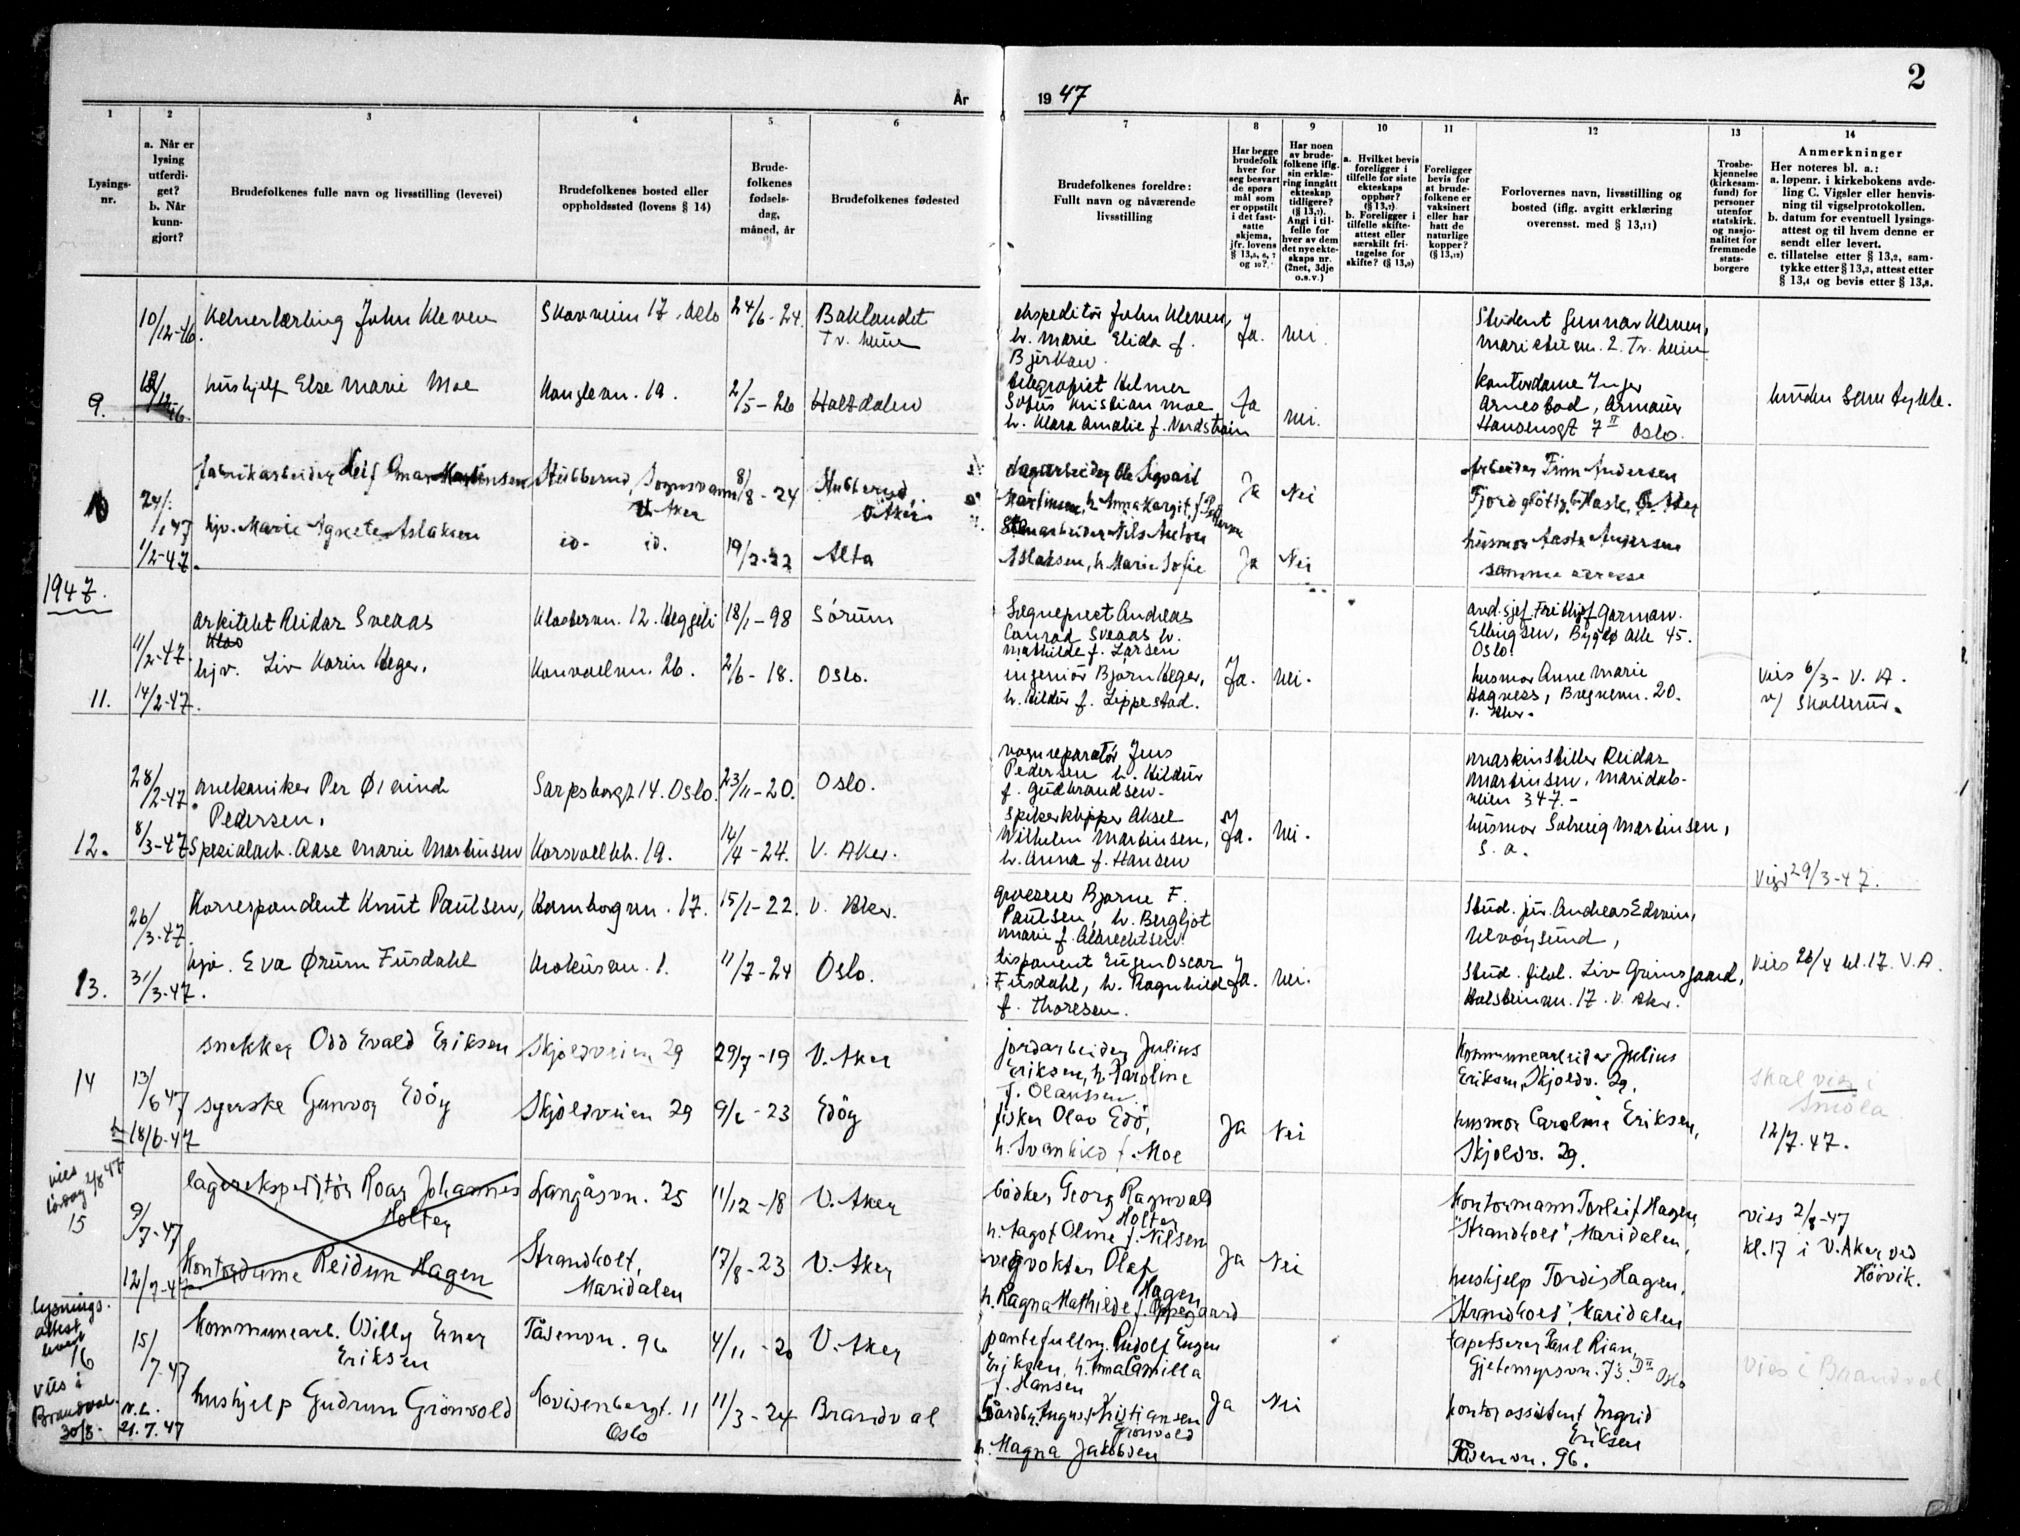 2
År
19 47
1
2
3
4
5
6
7
8
9
10
11
12
13
14
Lysings-
nr.
a. Når er
lysing
utferdi-
get?
b. Når
kunn-
gjort?
Brudefolkenes fulle navn og livsstilling (levevei)
Brudefolkenes bosted eller
oppholdssted (lovens § 14)
Brude-
folkenes
fødsels-
dag,
måned, år
Brudefolkenes fødested
Brudefolkenes foreldre:
Fullt navn og nåværende
livsstilling
Har begge
brudefolk
hver for
seg besvart
de spørs
mål som
er oppstilt
i det fast-
satte
skjema,
jfr. lovens
§ 13,5, 6, 7
og 10?
Har noen
av brude-
folkene iflg.
sin erklæ-
ring inngått
ekteskap
tidligere?
(§ 13,7).
Angi i til-
felle for
hver av dem
det nye ekte-
skaps nr.
(2net, 3dje
o.s.v.)
a. Hvilket bevis
foreligger i
tilfelle for siste
ekteskaps
opphør?
(§ 13,7).
b. Foreligger i
tilfelle skifte-
attest eller
særskilt fri-
tagelse for
skifte? (§ 13,9)
Foreligger
bevis for
at brude-
folkene er
vaksinert
eller har
hatt de
naturlige
kopper?
(§ 13,12)
Forlovernes navn, livsstilling og
bosted (iflg. avgitt erklæring
overensst. med § 13,11)
Trosbe-
kjennelse
(kirkesam-
fund) for
personer
utenfor
statskirk.
og nasjo-
nalitet for
fremmede
stats-
borgere
Anmerkninger
Her noteres bl. a.:
a. løpenr. i kirkebokens avde-
ling C. Vigsler eller henvis-
ning til vigselprotokollen.
b. datum for eventuell lysings-
attest og til hvem denne er
sendt eller levert.
c. tillatelse etter § 13,2, sam-
tykke etter § 13,3, attest etter
§ 13,4 og bevis etter § 13,8.
10/12-46 Kelnerlærling John Kleven Skovveien 17. Oslo 24/6-24. Baklandet
Tr.heim
ekspeditör John Kleven,
h. Marie Elida f.
Bjerkan.
Ja. Nei.
Student Gunnar Kleven,
2. Tr. heim
9. hushjelp Else Marie Moe Konglevn. 19. 2/5-26 Haltdalen
telegrafist Helmer
Sofus Kristian Moe
h. Klara Amalie f. Nordstrøm
Ja Nei.
Kontordame Inger
Arnestad, Armauer
Hansensgt 7 II Oslo.
10 24/1 47 fabrikarbeider Leif Martinsen Stubberud, Sognsvann 8/8-24 Stubberud,
V. Aker
V. Aker
Ole Sigvart
Martinsen, h. Anna Margit, f.
Ja Nei
Arbeider Finn Andersen
1/2-47. hjv. Marie Agnete Aslaksen io. io. 19/2-22 Alta
Nils Anton
Aslaksen, h. Marie Sofie
Ja Nei
husmor Aasta Andersen
samme adresse
1947.
11. 11/2-47. arkitekt Reidar Sveaas Klostervn. 12. Heggeli 18/1-98 Sörum
Sogneprest Andreas
Conrad Sveaas h.
Mathilde f. Larsen
avd. sjef Frithjof Gorman.
Ellingsen, Bygdø Alle 45.
Oslo.
14/2-47. hjv. Liv Karin Heger, Konvallvn. 26. 2/6-18. Oslo.
ingeniör Bjørn Heger,
h. Hildur f. Lippestad.
Ja. Nei.
husmor Anne Marie
Hagness, 20.
V. Aker.
vies 6/3- V. A.
v/ Skollerud.
12. 28/2-47. mekaniker Per Øivind
Pedersen,
Sarpsborggt 14. Oslo. 23/11-20. Oslo.
vognreparatör Jens
Pedersen h. Hildur
f. Gudbrandsen.
maskinstiller Reidar
Martinsen, Maridals-
veien 347.-
8/3-47 Spesialarb. Aase Marie Martinsen Korsvollbk. 19. 14/4-24. V. Aker.
Spikerklipper Aksel
Wilhelm Martinsen,
h. Anna f. Hansen
Ja. Nei.
husmor Solveig Martinsen,
s. a.
Vigd 29/3-47.
13. 26/3-47. Korrespondent Knut Paulsen, Kornborgvn. 17. 15/1-22. V. Aker.
grosserer Bjarne F.
Paulsen, h. Bergljot
Marie f. Albrechtsen.
Stud. jur. Andreas Edwin,
Ulvöysund,
31/3-47. hjv. Eva Ørum Fusdahl Krokusvn. 1. 11/7-24 Oslo.
disponent Eugen Oscar
Fusdahl, h. Ragnhild
f. Thoresen.
Ja. Nei.
Stud. filol. Liv Grimsgaard,
Holsteinvn. 17. V. Aker.
Vies 26/4 kl. 17. V.A.
14 13/6 47 snekker Odd Evald Eriksen Skjoldveien 29 29/7-19 V. Aker
jordarbeider Julius
Eriksen, h. Karoline
f. Olaussen.
Kommunearbeider Julius
Eriksen, Skjoldv. 29.
18/6-47 syerske Gunvor Edöy Skjoldveien 29 9/6-23 Edöy
fisker Olav Edö,
h. Svanhild f. Moe
Ja Nei
husmor Caroline Eriksen,
Skjoldv. 29.
Skal vies i
Smöla
12/7.47.
vies
lördag 2/8 47
15 9/7-47 lagerekspeditör Roar Johannes
Holter
Langåsvn. 25 11/12-18 V. Aker
bödker Georg Ragnvald
Holter
h. Dagot Oline f. Nilsen
Kontormann Torleif Hagen,
"Strandholt", Maridalen,
12/7-47 Kontordame Reidun Hagen Strandholt,
Maridalen
17/8-23 V. Aker
vegvokter Olaf
Hagen
h. Ragna Mathilde f. Oppegaard
Ja Nei
hushjelp Tordis Hagen,
"Strandholt", Maridalen
vies 2/8-47
kl. 17 i V. Aker ved
Höivik.
lysnings-
attest
levert
16
vies i
Brandval
30/8.
15/7-47 Kommunearb. Willy Erner
Eriksen
Tåsenvn. 96 4/11-20 V. Aker
pantefullm. Rudolf Eugen
Eriksen, h. Anna Camilla
f. Hansen
tapetserer Paul Rian,
Gjetemyrsvn. 73. D II Oslo
N.L.
21.7.47 hushjelp Gudrun Grönvold Lovisenberggt. 11
Oslo
11/3-24 Brandval
Gårdbr. August Kristiansen
Grönvold
h. Magna Jakobsen
Ja Nei
kontorassistent Ingrid
Eriksen
Tåsenvn. 96.
Vies i Brandval